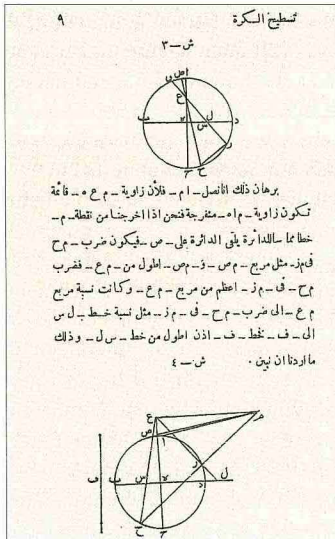 تسطيح الكرة ٩
ش — ٣
برهان ذلك انا نصل _ ام _ فلأن زاوية _ م ع ه _ قائمة
تكون زاوية _ م ا ه _ منفرجة فنحن اذا اخرجنا من نقطة _ م _
خطا مماسا للدائرة يلقى الدائرة على _ ص _ فيكون ضرب _ م ح
فى م ز _ مثل مربع _ م ص _ و _ م ص _ اطول من _ م ع _ فضرب
م ح _ فى _ م ز _ اعظم من مربع _ م ع _ وكانت نسبة مربع
م ع _ الى ضرب _ م ح _ فى _ م ز _ مثل نسبة خط _ ل س
الى _ ف _ فخط _ ف _ اذن اطول من خط _ س ل _ وذلك
ما اردنا ان نبين ٠ ش — ٤